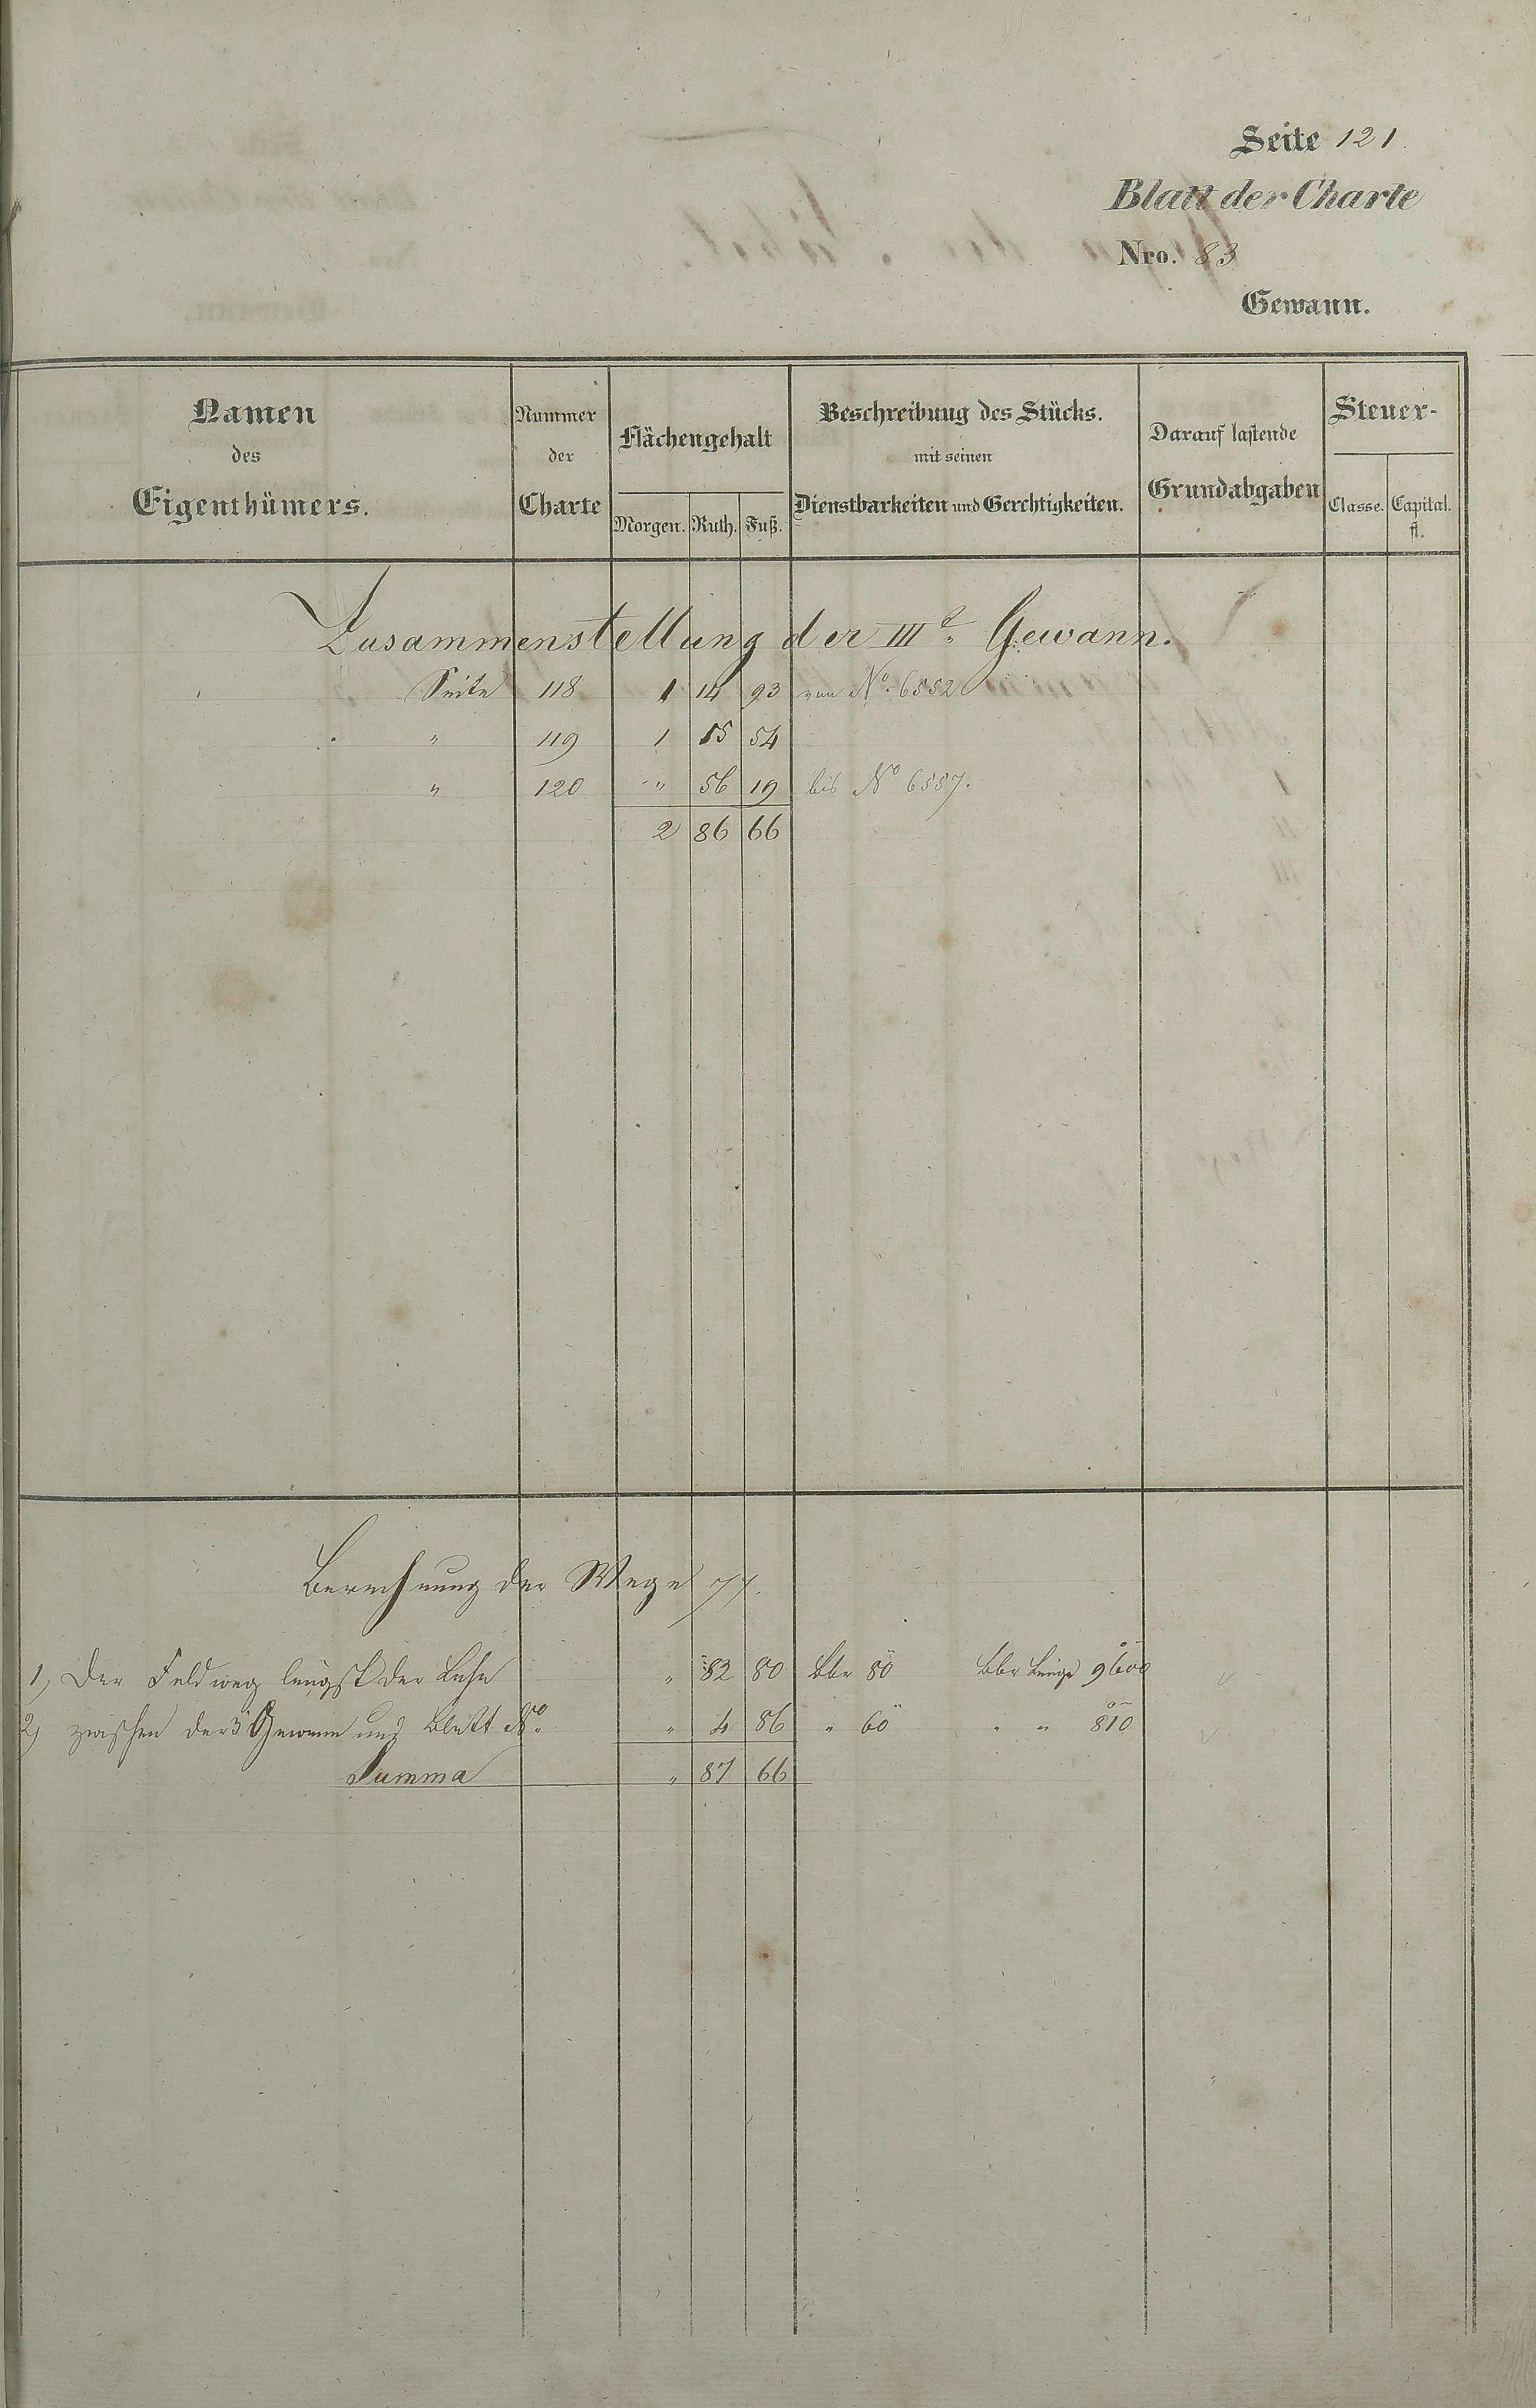 Seite 121.
Blatt der Charte
Nro. 83
Gewann.
Namen des Eigenthümers.
Nummer der Charte
Flächengehalt
Morgen. Ruth. Fuß.
Beschreibung des Stücks. mit seinen Dienstbarkeiten und Gerechtigkeiten.
Darauf lastende Grundabgaben
Steuer-
Classe. Capital. fl.
Zusammenstellung der III.t Gewann.
Seite 118 1 14 93 von No. 6552
" 119 1 15 54
" 120 " 56 19 bis No 6557.
2 86 66
Berechnung der Wege
1) Der Feldweg längst der " 82 80 80 Länge 9600
2) zwischen der 3 Gewann und Blatt No. " 4 86 " 60 " " 810
Summa " 87 66